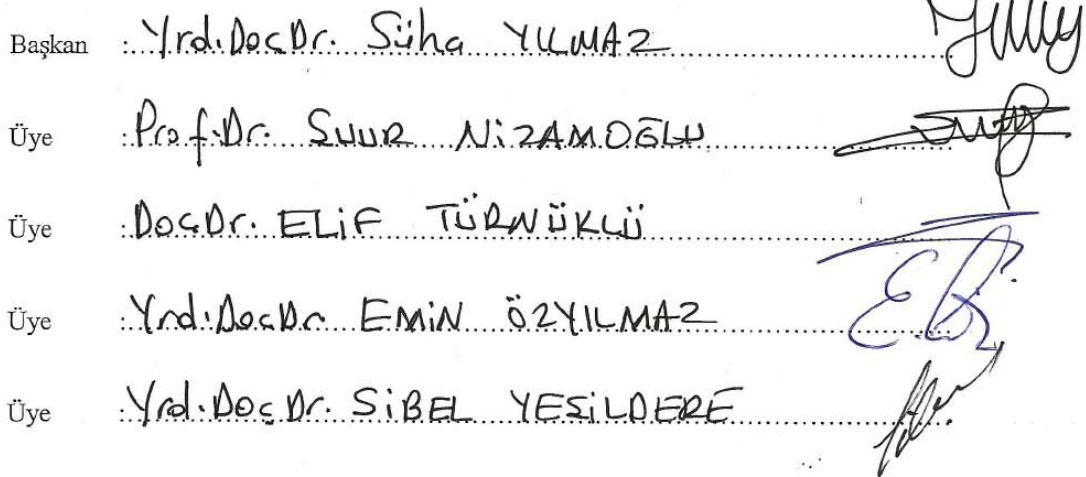 Başkan : Yrd.Doç.Dr. Süha YILMAZ
Üye : Prof.Dr. ŞUUR NİZAMOĞLU
Üye : Doç.Dr. ELİF TÜRNÜKLÜ
Üye : Yrd.Doç.Dr. EMİN ÖZYILMAZ
Üye : Yrd.Doç.Dr. SİBEL YEŞİLDERE